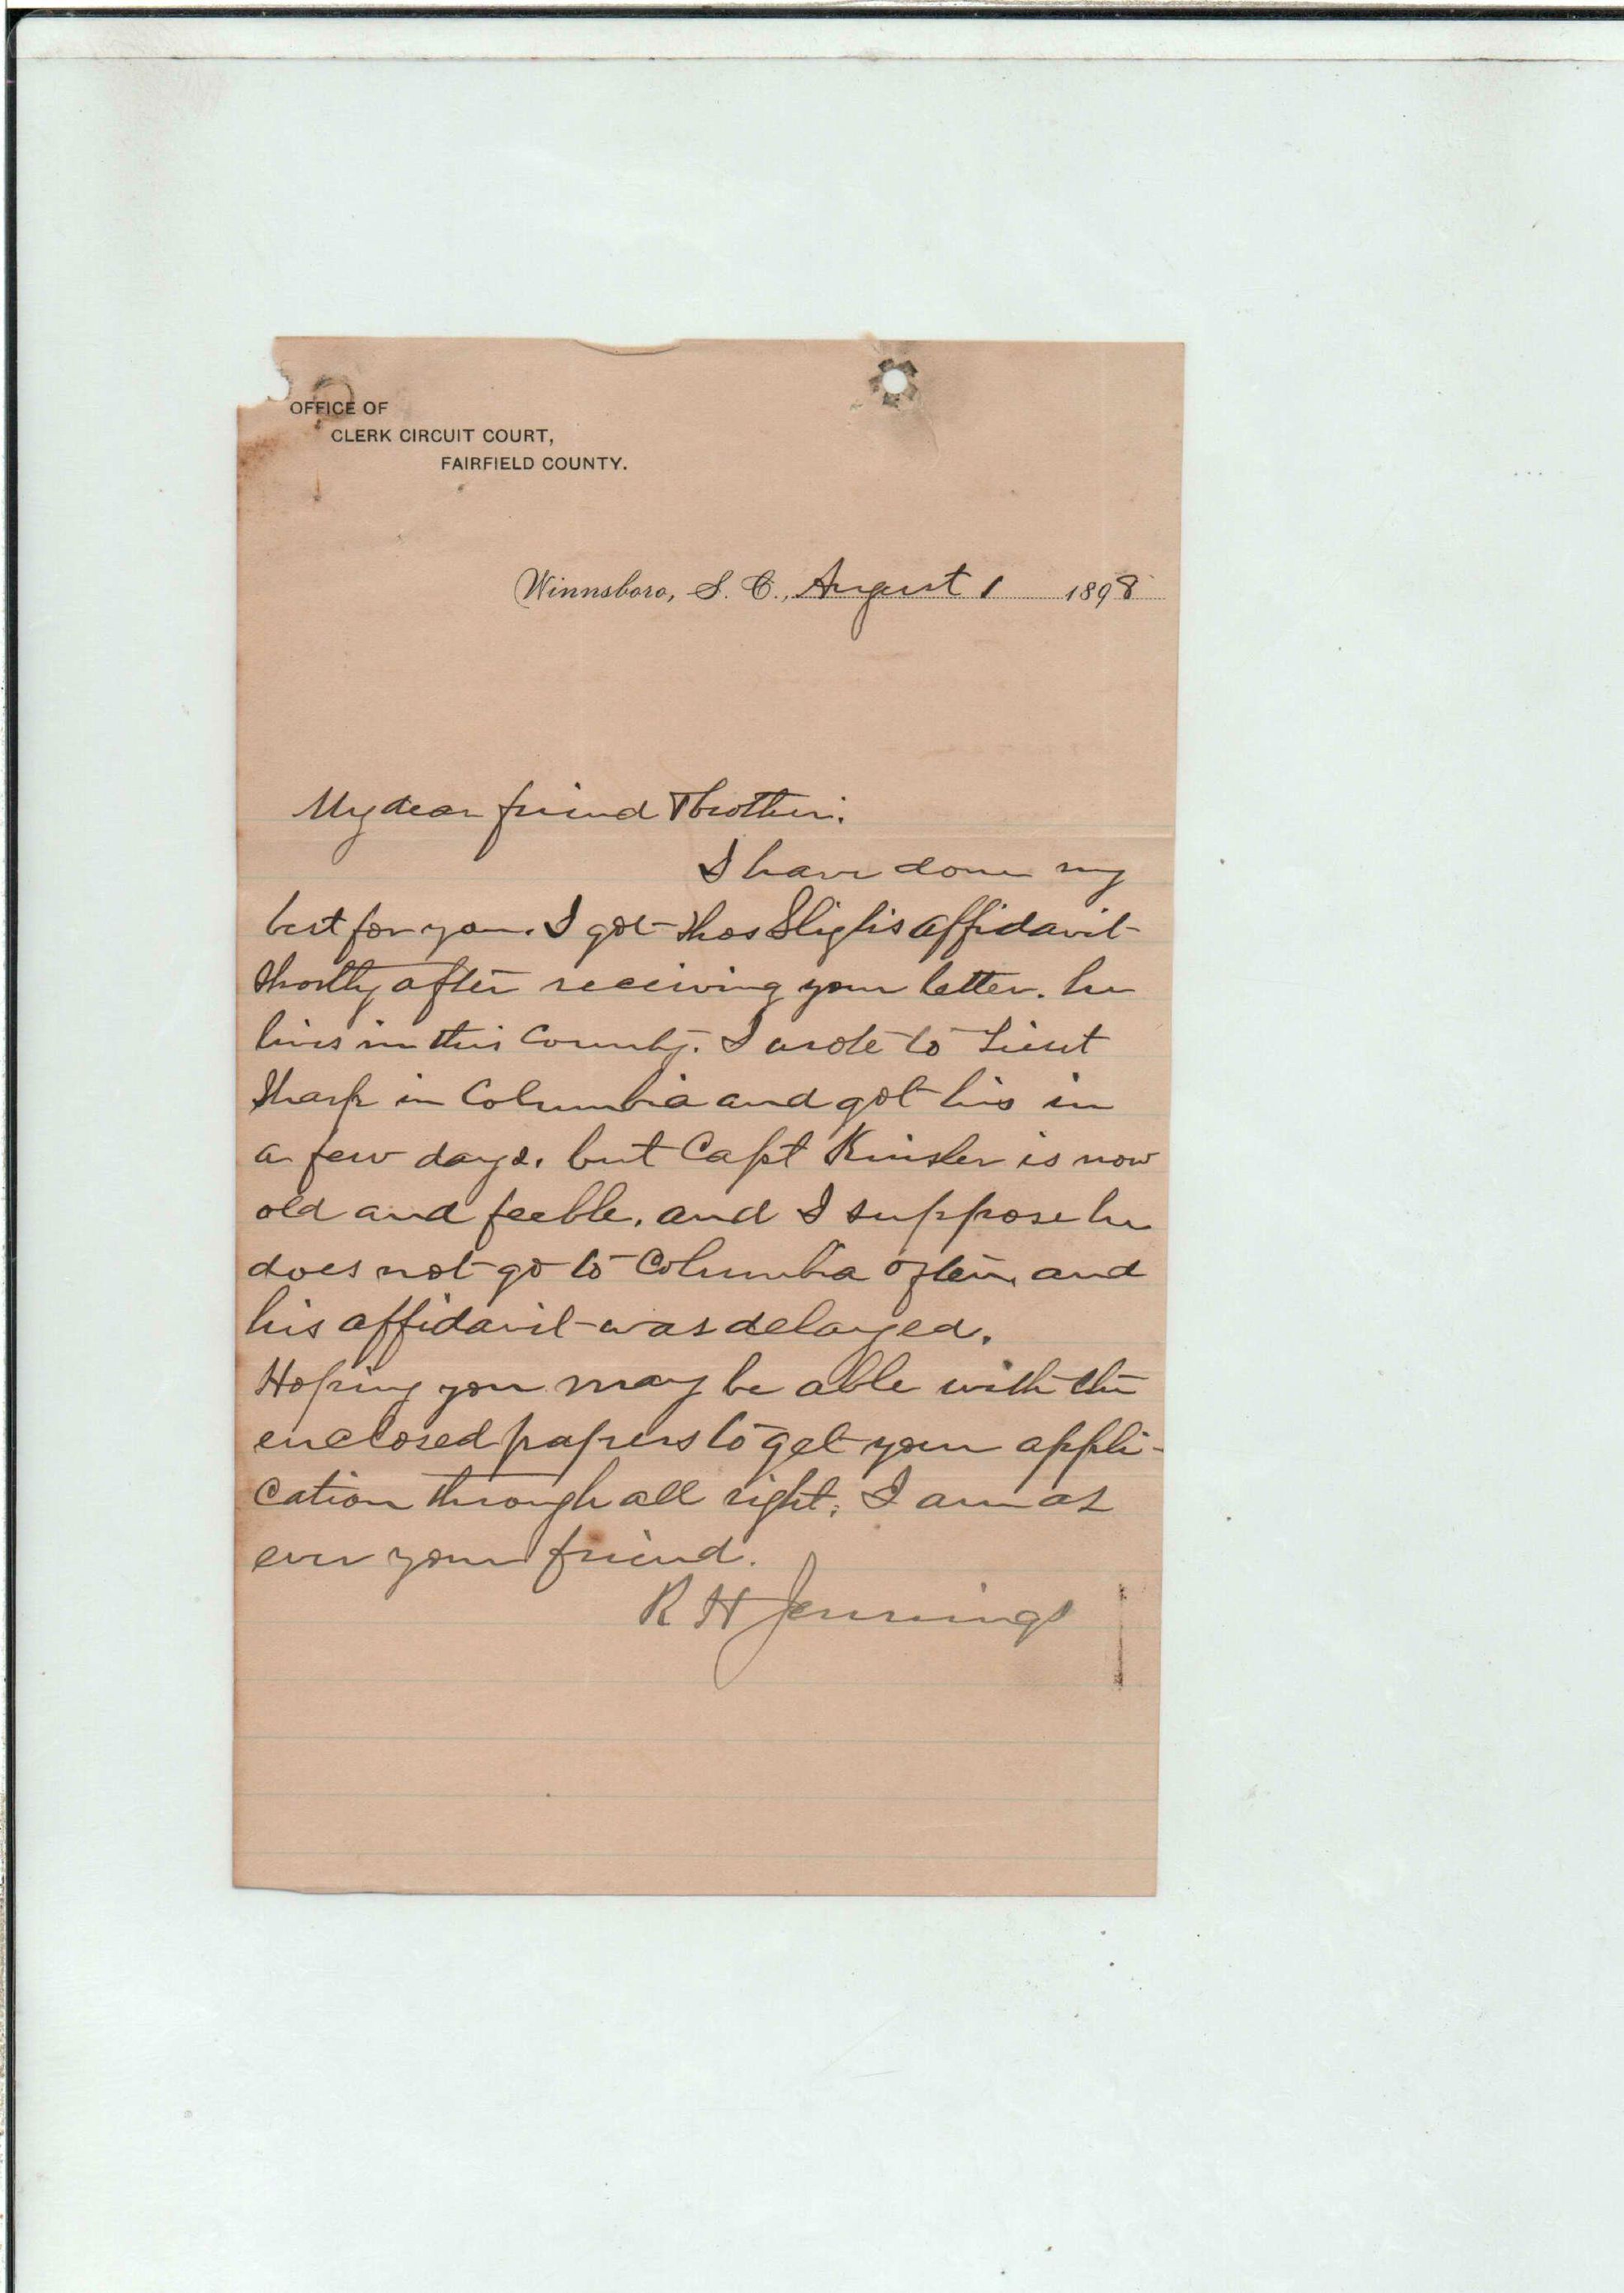 OFFICE OF
CLERK CIRCUIT COURT,
FAIRFIELD COUNTY.
Winnsboro, S. C., August 1 1898
My dear friend & brother.
I have done my
best for you. I got Thos Slighs affidavit
shortly after receiving your letter. he
lives in this County. I wrote to Lieut
Sharp in Columbia and got his in
a few days. but Capt Kinsler is now
old and feeble, and I suppose he
does not go to Columbia often, and
his affidavit was delayed.
Hoping you may be able with the
enclosed papers to get your appli-
cation through all right, I am as
ever your friend.
R H Jennings